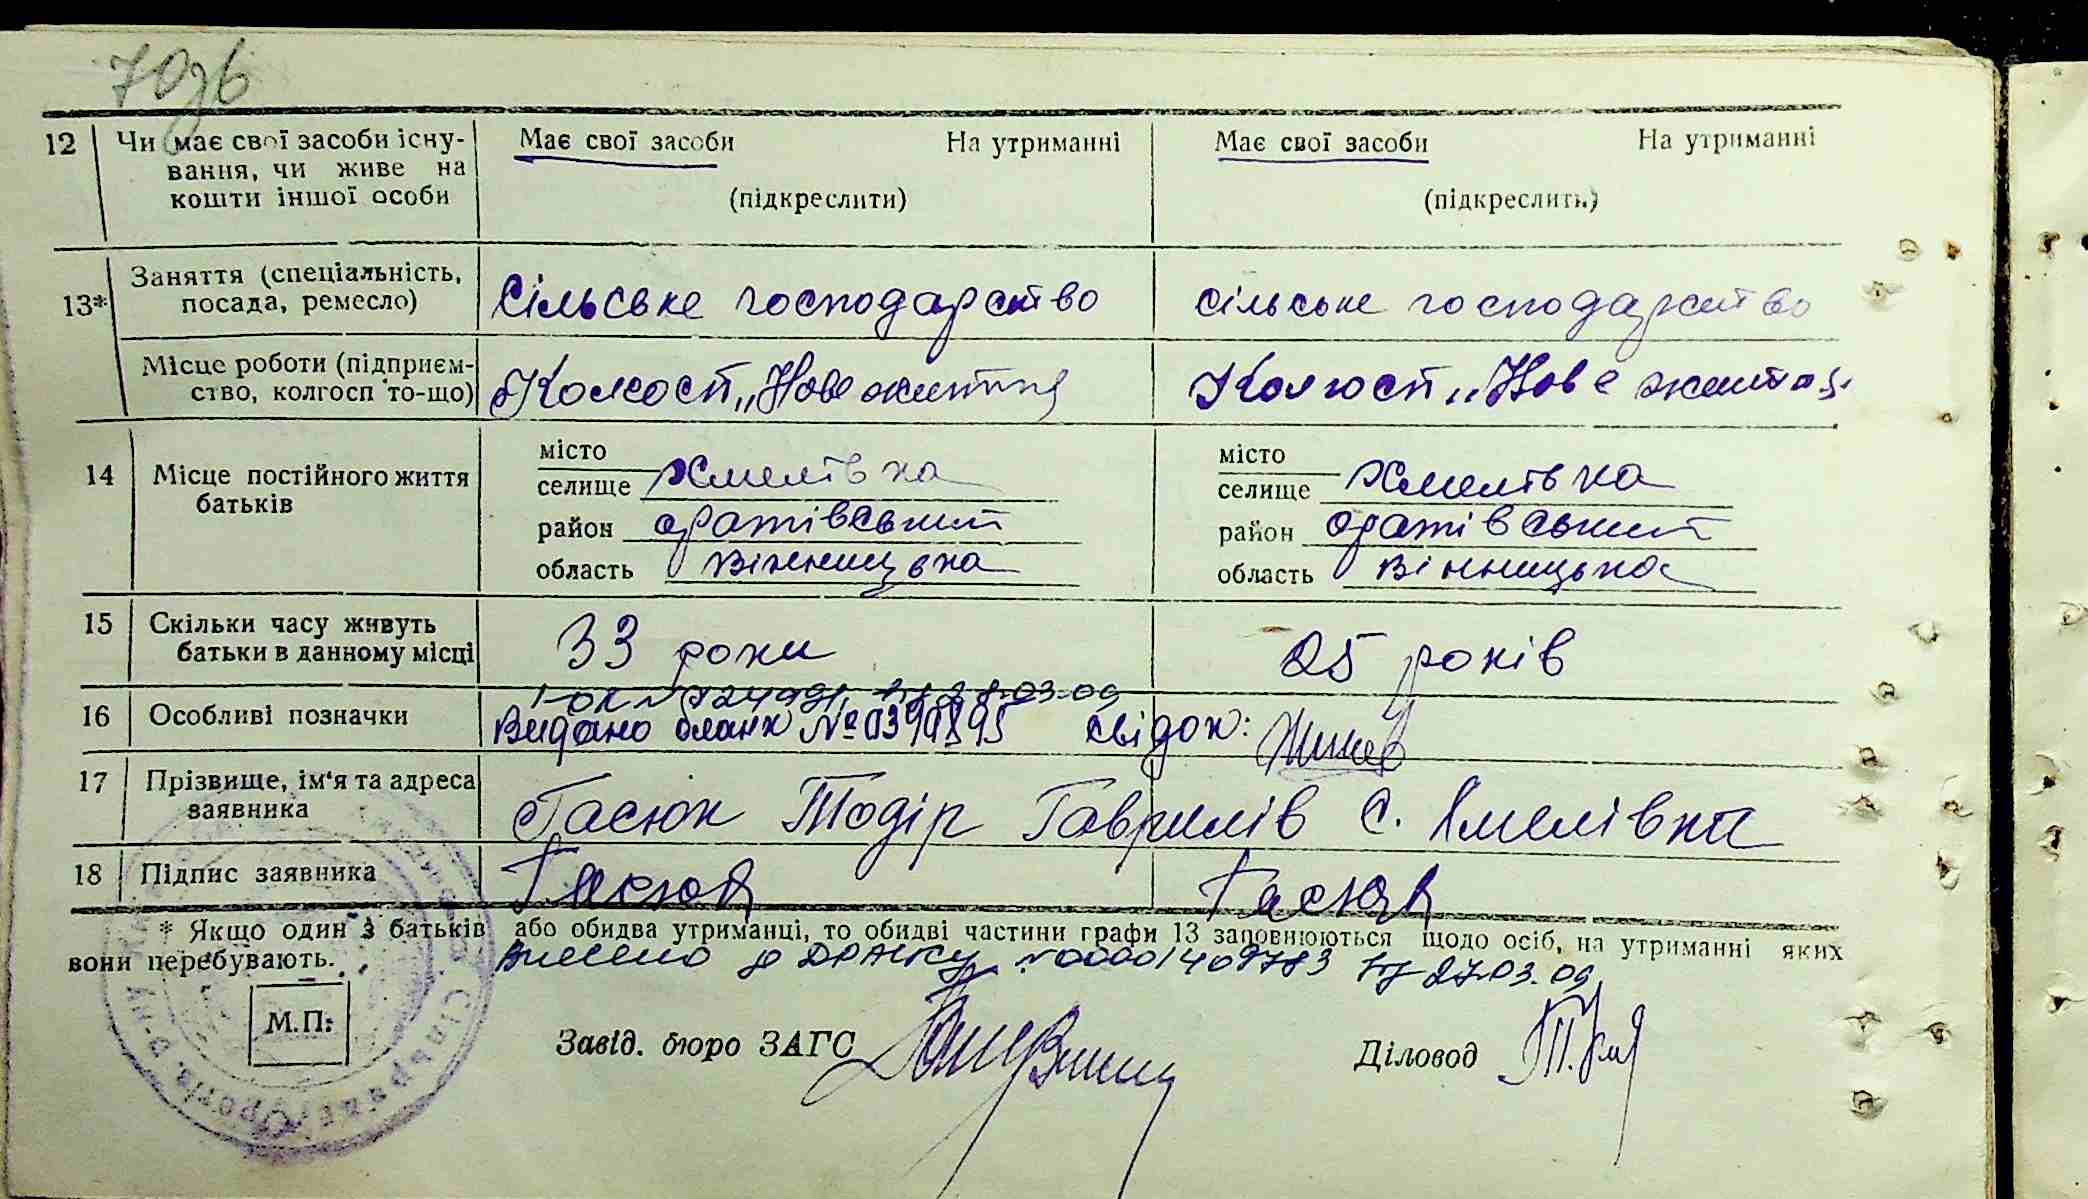 70зб
12 Чи має свої засоби існу- Має свої засоби На утриманні Має свої засоби На утриманні
вання, чи живе на
кошти іншої особи (підкреслити) (підкреслити)
13* Заняття (спеціальність,
посада, ремесло) Сільське господарство сільське господарство
Місце роботи (підприєм-
ство, колгосп то-що) Колгосп „Нове життя Колгосп „Нове життя
14 Місце постійного життя
батьків
місто місто
селище Хмелівка селище Хмелівка
район оратівський район оратівський
область Вінницька область Вінницька
15 Скільки часу живуть
батьки в данному місці 33 роки 25 років
03-09
16 Особливі позначки Видано бланк № свідок:
17 Прізвище, ім'я та адреса
заявника Гасюк Тодір Гаврилів с. Хмелівка
18 Підпис заявника Гасюк Гасюк
* Якщо один з батьків або обидва утриманці, то обидві частини графи 13 заповнюються щодо осіб, на утриманні яких
вони перебувають. Внесено до ДРАЦСу №00001409783 від 27.03.09
М.П. Завід. бюро ЗАГС Діловод